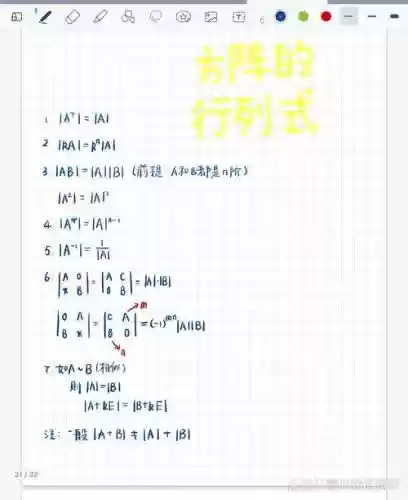 方阵的
行列式
1. |Aᵀ| = |A|
2. |kA| = kⁿ|A|
3. |AB| = |A||B| (前提 A和B都是n阶)
|A²| = |A|²
4. |A*| = |A|ⁿ⁻¹
5. |A⁻¹| = 1/|A|
6. |A O; * B| = |A C; O B| = |A|·|B|
m
|O A; B *| = |C A; B O| = (-1)ᵐⁿ|A||B|
n
7. 如A~B (相似)
则 |A| = |B|
|A+kE| = |B+kE|
注: 一般 |A+B| ≠ |A| + |B|
21 / 30